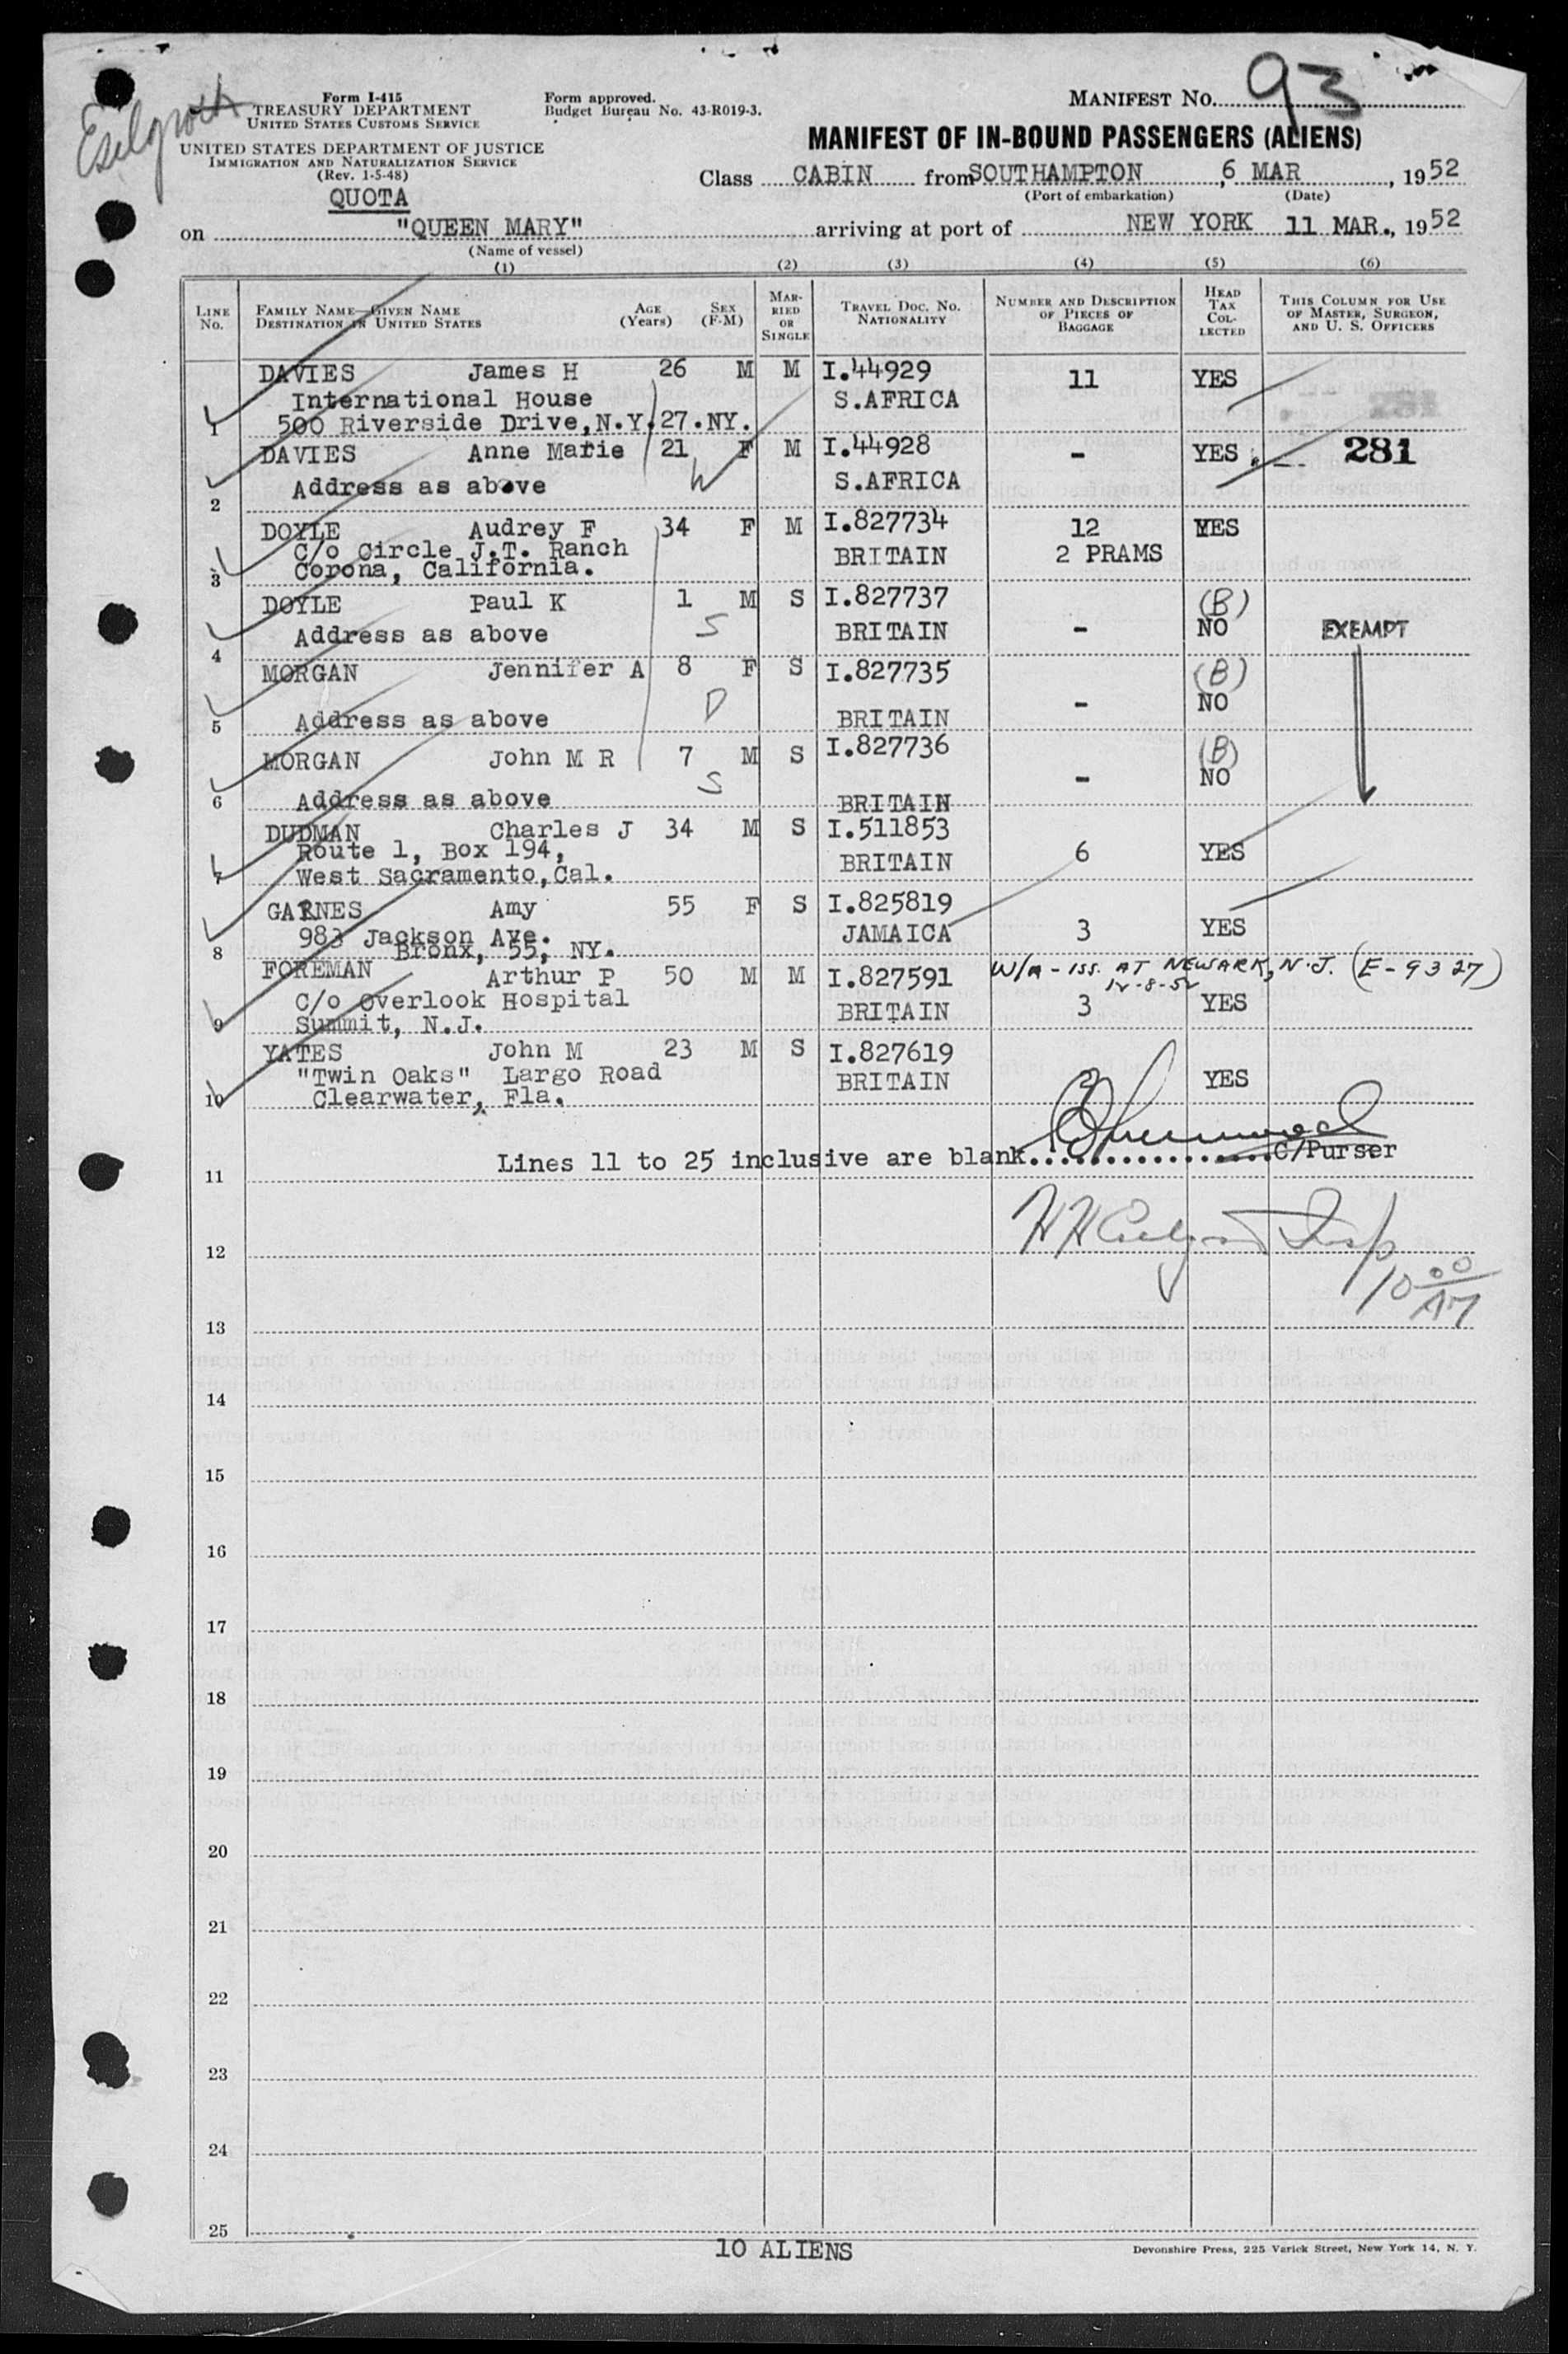 Form I-415
TREASURY DEPARTMENT
UNITED STATES CUSTOMS SERVICE
UNITED STATES DEPARTMENT OF JUSTICE
IMMIGRATION AND NATURALIZATION SERVICE
(Rev. 1-5-48)
QUOTA
Form approved.
Budget Bureau No. 43-R019-3.
MANIFEST NO. 93
MANIFEST OF IN-BOUND PASSENGERS (ALIENS)
Class CABIN from SOUTHAMPTON, 6 MAR, 1952
(Port of embarkation) (Date)
on "QUEEN MARY" arriving at port of NEW YORK 11 MAR., 1952
(Name of vessel)
(1) (2) (3) (4) (5) (6)
LINE NO. FAMILY NAME—GIVEN NAME DESTINATION IN UNITED STATES AGE (Years) SEX (F-M) MARRIED OR SINGLE TRAVEL DOC. NO. NATIONALITY NUMBER AND DESCRIPTION OF PIECES OF BAGGAGE HEAD TAX COLLECTED THIS COLUMN FOR USE OF MASTER, SURGEON, AND U. S. OFFICERS
DAVIES James H 26 M M I.44929 11 YES
International House S.AFRICA
1 500 Riverside Drive,N.Y.27.NY.
DAVIES Anne Marie 21 F M I.44928 - YES 281
W
2 Address as above S.AFRICA
DOYLE Audrey F 34 F M I.827734 12 YES
C/o Circle J.T. Ranch BRITAIN 2 PRAMS
3 Corona, California.
DOYLE Paul K 1 M S I.827737 (B)
4 Address as above S BRITAIN - NO EXEMPT
MORGAN Jennifer A 8 F S I.827735 (B)
D - NO
5 Address as above BRITAIN
MORGAN John M R 7 M S I.827736 (B)
S - NO
6 Address as above BRITAIN
DUDMAN Charles J 34 M S I.511853
Route 1, Box 194, BRITAIN 6 YES
7 West Sacramento,Cal.
GARNES Amy 55 F S I.825819
983 Jackson Ave. JAMAICA 3 YES
8 Bronx, 55, NY.
FOREMAN Arthur P 50 M M I.827591 W/A - ISS. AT NEWARK, N.J. (E-9327)
12-8-52
C/o Overlook Hospital BRITAIN 3 YES
9 Summit, N.J.
YATES John M 23 M S I.827619
"Twin Oaks" Largo Road BRITAIN 2 YES
10 Clearwater, Fla.
11 Lines 11 to 25 inclusive are blank..................C/Purser
12
Insp
10 00
13
14
15
16
17
18
19
20
21
22
23
24
25
10 ALIENS
Devonshire Press, 225 Varick Street, New York 14, N. Y.